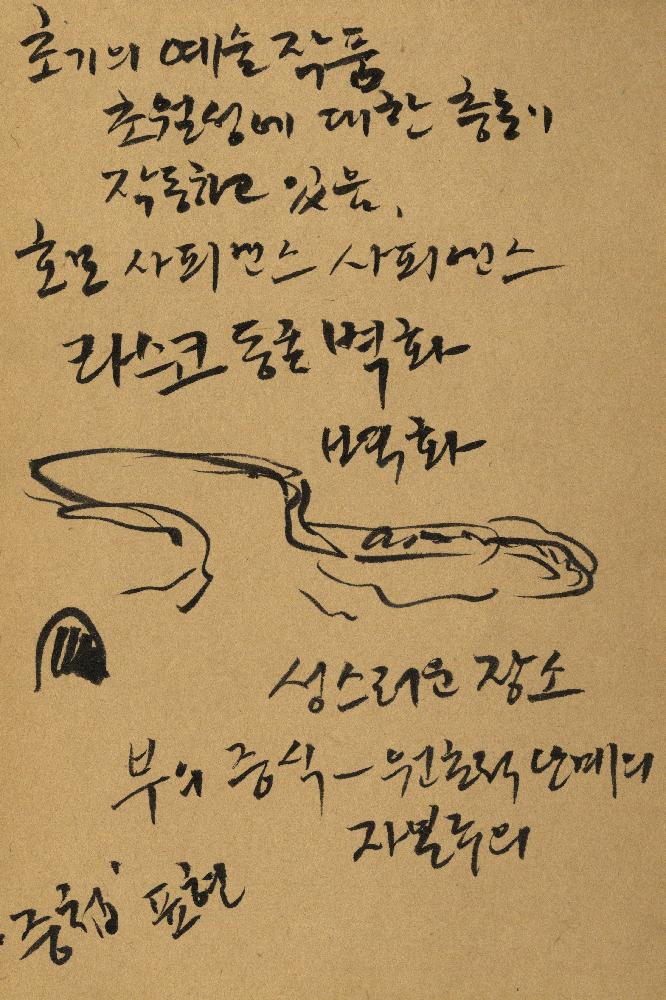 초기의 예술작품
초월성에 대한 충동이
작동하고 있음.
호모 사피엔스 사피엔스
라스코 동굴 벽화
벽화
성스러운 장소
부의 증식 - 원초적 단계의
자본주의
'중첩' 표현